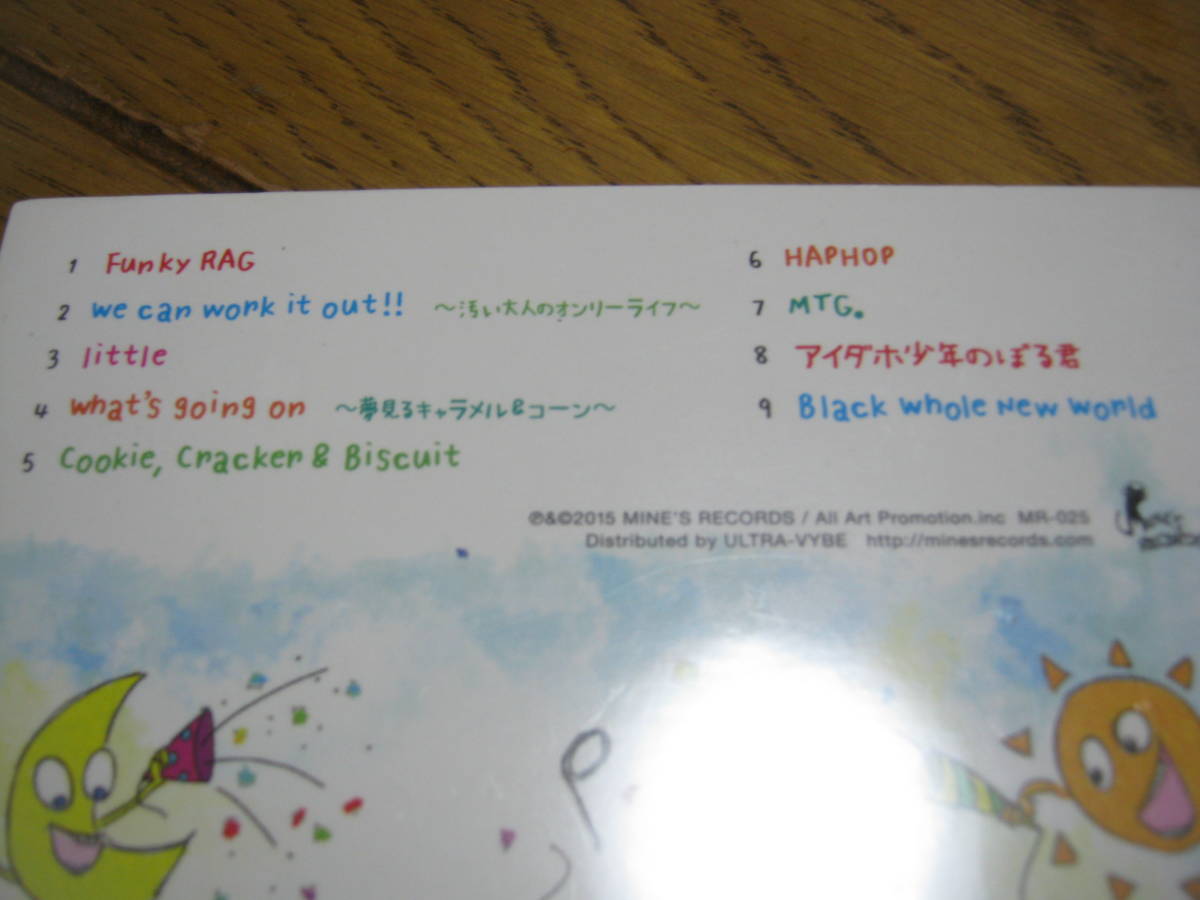 1 Funky RAG
2 we can work it out!! ～汚い大人のオンリーライフ～
3 little
4 what's going on ～夢見るキャラメル&コーン～
5 Cookie, Cracker & Biscuit
6 HAPHOP
7 MTG。
8 アイダホ少年のぼる君
9 Black whole New world
℗&©2015 MINE'S RECORDS / All Art Promotion.inc MR-025
Distributed by ULTRA-VYBE http://minesrecords.com
P